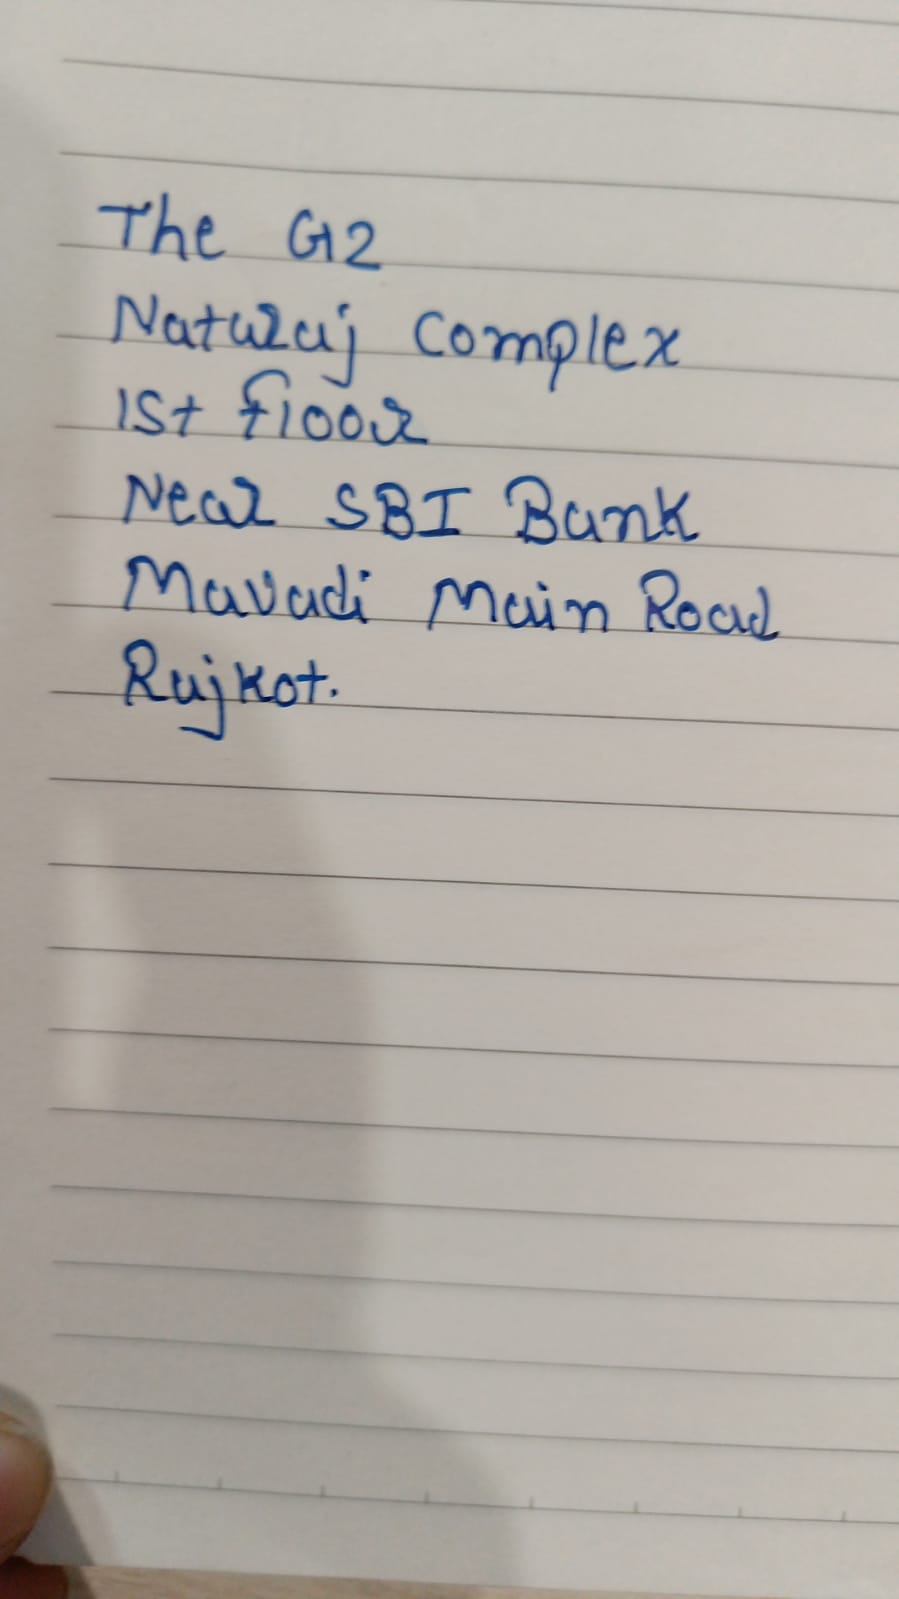 The G2
Naturaj Complex
1st floor
Near SBI Bank
Mavadi Main Road
Rajkot.